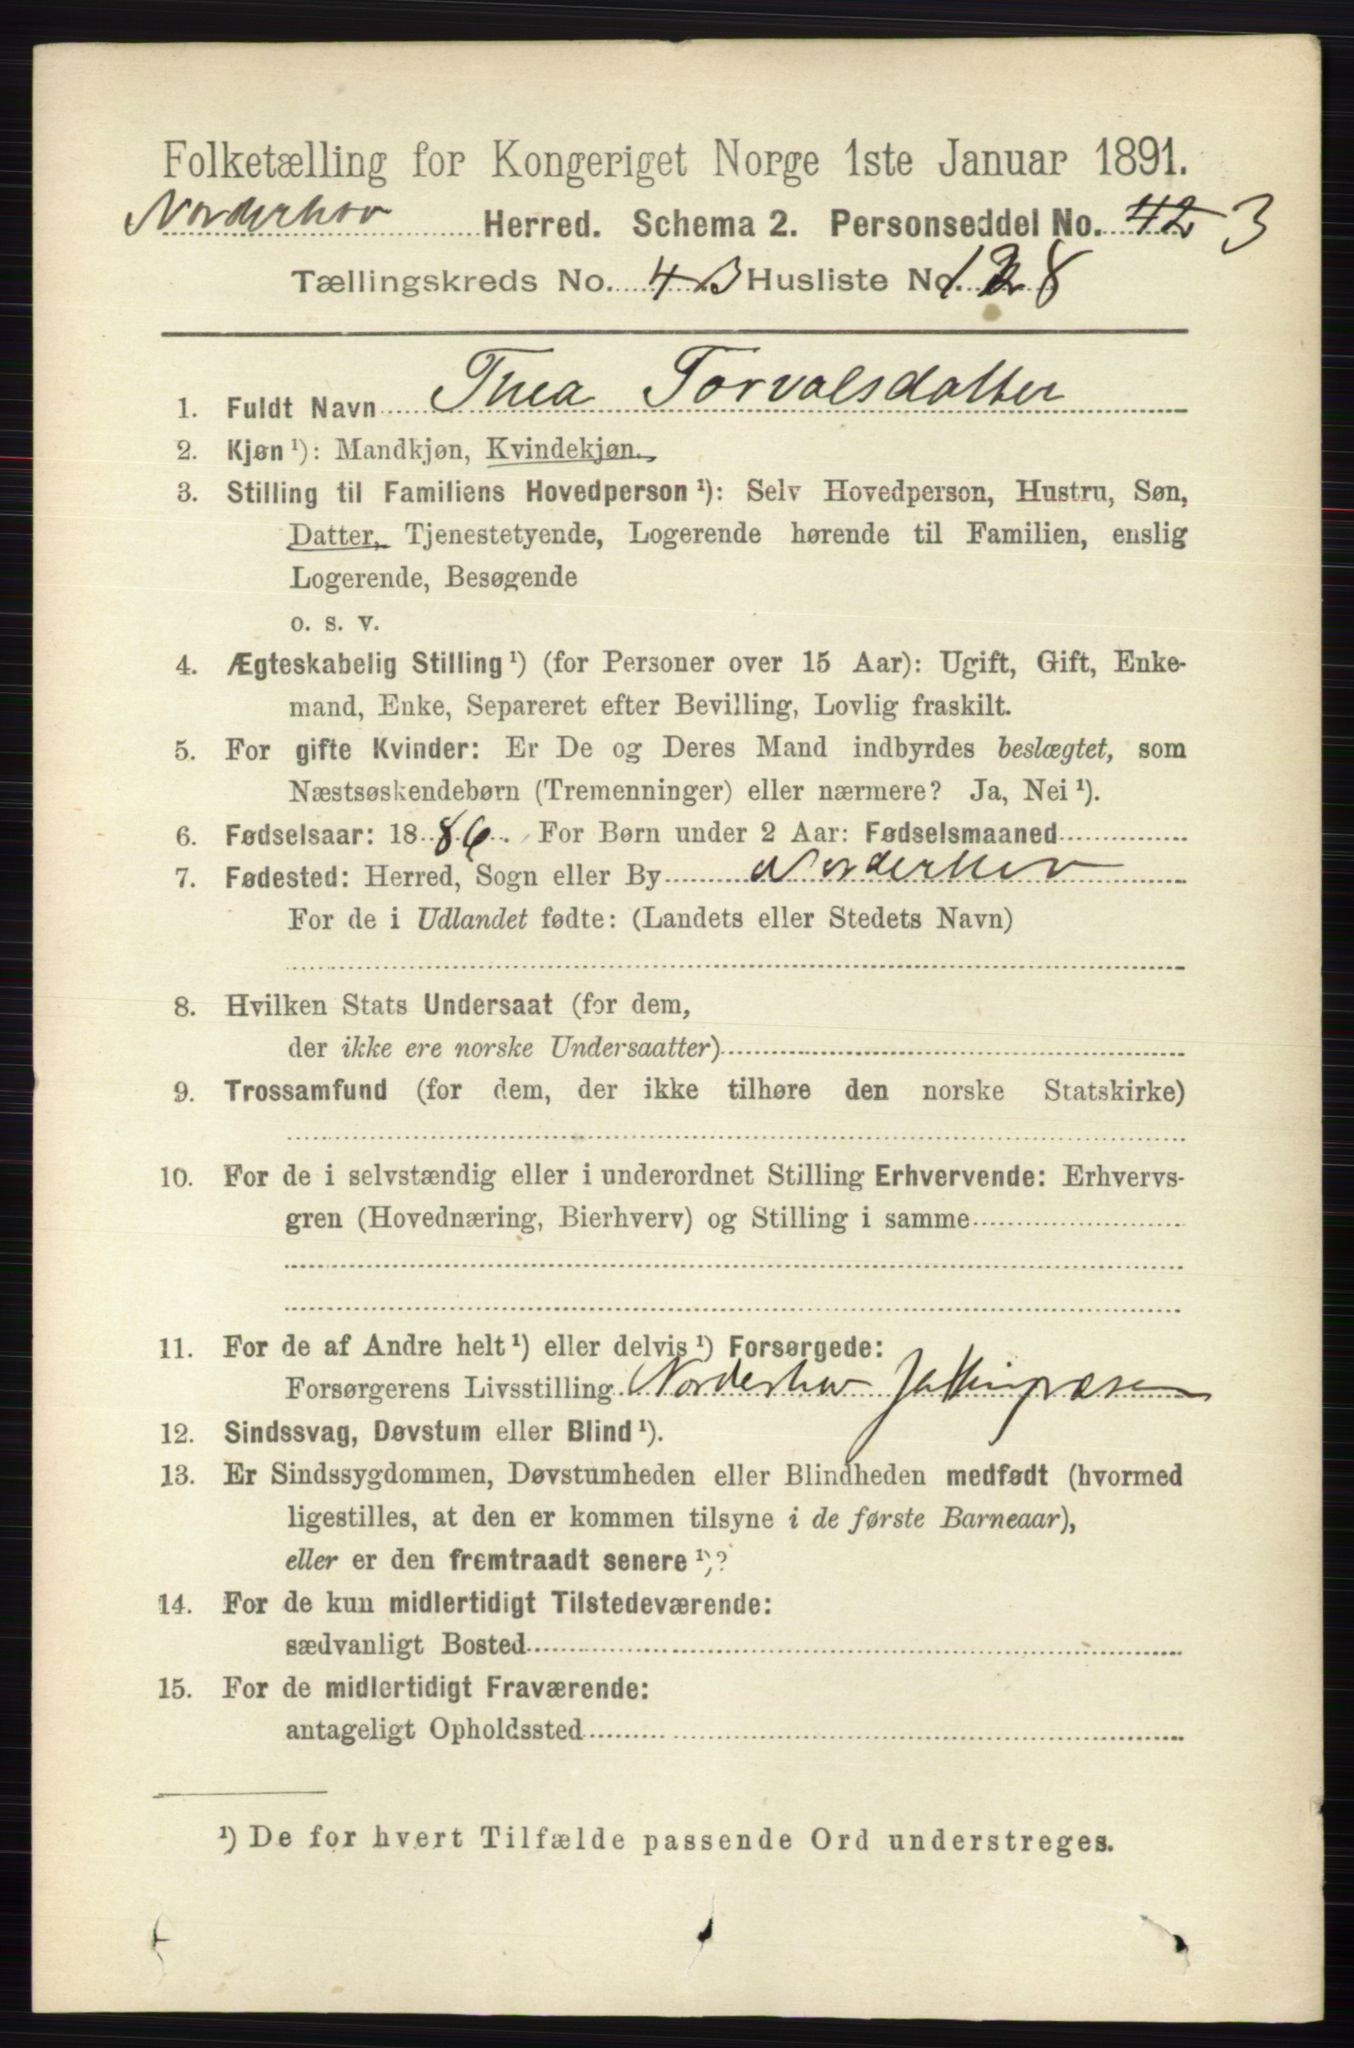 Folketælling for Kongeriget Norge 1ste Januar 1891.
Norderhov Herred. Schema 2. Personseddel No. 42 3
Tællingskreds No. 4 B Husliste No. 128
1. Fuldt Navn Thea Torvalsdatter
2. Kjøn ¹): Mandkjøn, Kvindekjøn.
3. Stilling til Familiens Hovedperson ¹): Selv Hovedperson, Hustru, Søn,
Datter, Tjenestetyende, Logerende hørende til Familien, enslig
Logerende, Besøgende
o. s. v.
4. Ægteskabelig Stilling ¹) (for Personer over 15 Aar): Ugift, Gift, Enke-
mand, Enke, Separeret efter Bevilling, Lovlig fraskilt.
5. For gifte Kvinder: Er De og Deres Mand indbyrdes beslægtet, som
Næstsøskendebørn (Tremenninger) eller nærmere? Ja, Nei ¹).
6. Fødselsaar: 1886. For Børn under 2 Aar: Fødselsmaaned
7. Fødested: Herred, Sogn eller By Norderhov
For de i Udlandet fødte: (Landets eller Stedets Navn)
8. Hvilken Stats Undersaat (for dem,
der ikke ere norske Undersaatter)
9. Trossamfund (for dem, der ikke tilhøre den norske Statskirke)
10. For de i selvstændig eller i underordnet Stilling Erhvervende: Erhvervs-
gren (Hovednæring, Bierhverv) og Stilling i samme
11. For de af Andre helt ¹) eller delvis ¹) Forsørgede:
Forsørgerens Livsstilling Norderhov
12. Sindssvag, Døvstum eller Blind ¹).
13. Er Sindssygdommen, Døvstumheden eller Blindheden medfødt (hvormed
ligestilles, at den er kommen tilsyne i de første Barneaar),
eller er den fremtraadt senere ¹)?
14. For de kun midlertidigt Tilstedeværende:
sædvanligt Bosted
15. For de midlertidigt Fraværende:
antageligt Opholdssted
¹) De for hvert Tilfælde passende Ord understreges.